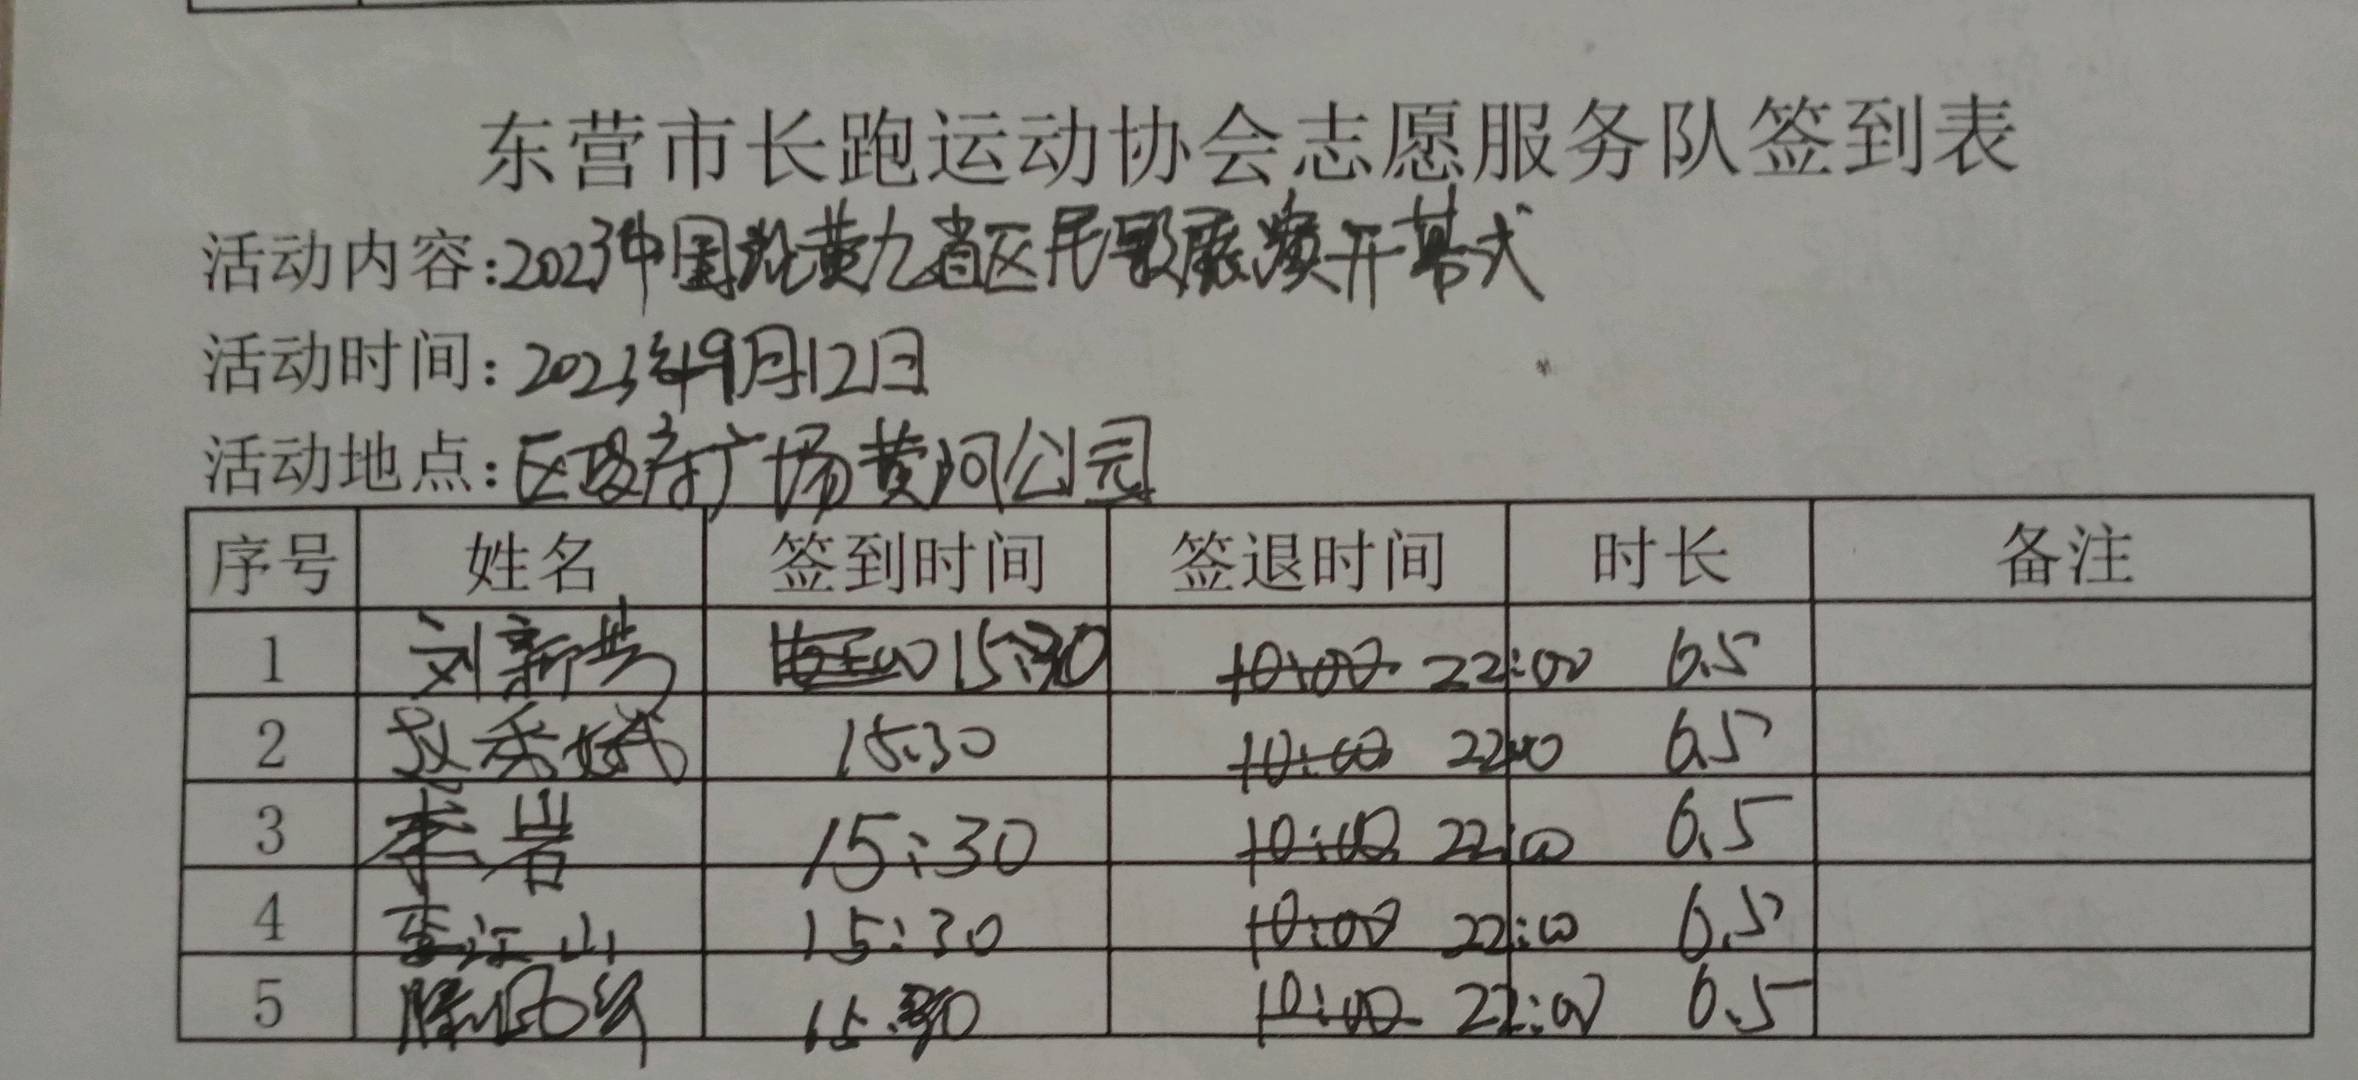 东营市长跑运动协会志愿服务队签到表
活动内容:2023中国沿黄九省区民歌展演开幕式
活动时间:2023年9月12日
活动地点:区政府广场黄河公园
序号 姓名 签到时间 签退时间 时长 备注
1 刘新 15:30 10:00 22:00 6.5
2 赵秀娥 15:30 10:00 22:00 6.5
3 李岩 15:30 10:00 22:00 6.5
4 李江山 15:30 10:00 22:00 6.5
5 15:30 10:00 22:00 6.5